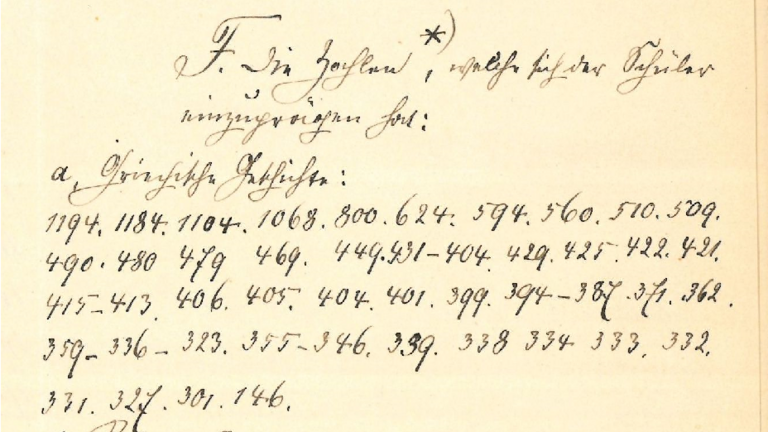 F. Die Zahlen *), welche sich der Schüler
einzuprägen hat:
a, Griechische Geschichte:
1194. 1184. 1104. 1068. 800. 624. 594. 560. 510. 509.
490. 480 479 469. 449. 431–404. 429. 425. 422. 421.
415–413. 406. 405. 404. 401. 399. 394–387. 371. 362.
359– 336– 323. 355–346. 339. 338 334 333. 332.
331. 327. 301. 146.